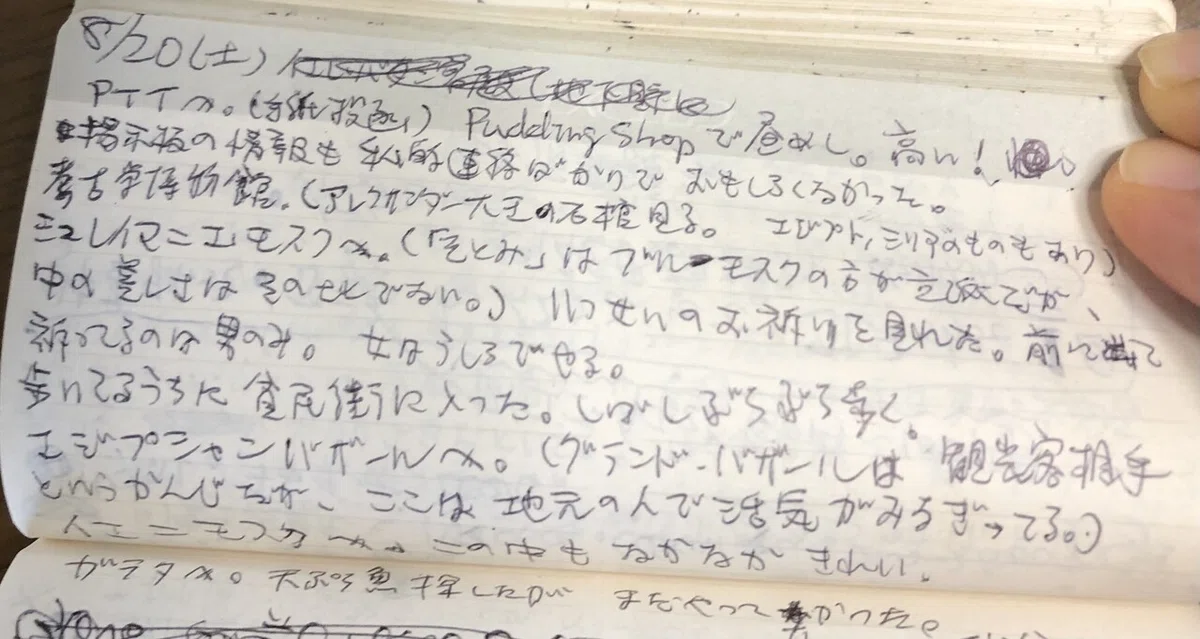 8/20(土)
PTTへ。(手紙投函) Pudding Shopで昼めし。高い!
掲示板の情報も私的連絡ばかりでおもしろくなかった。
考古学博物館。(アレクサンダー大王の石棺見る。エジプト、シリアのものもあり)
シュレイマニエモスクへ。(「そとみ」はブルーモスクの方が立派だが、
中の美しさはその比でない。) いっせいのお祈りを見れた。前に出て
祈ってるのは男のみ。女はうしろでやる。
歩いてるうちに貧民街に入った。しばしぶらぶら歩く。
エジプシャンバザールへ。(グランド・バザールは観光客相手
というかんじだが、ここは地元の人で活気がみなぎってる。)
イエニモスクへ。この中もなかなかきれい。
ガラタへ。天ぷら魚探したが まだやってなかった。